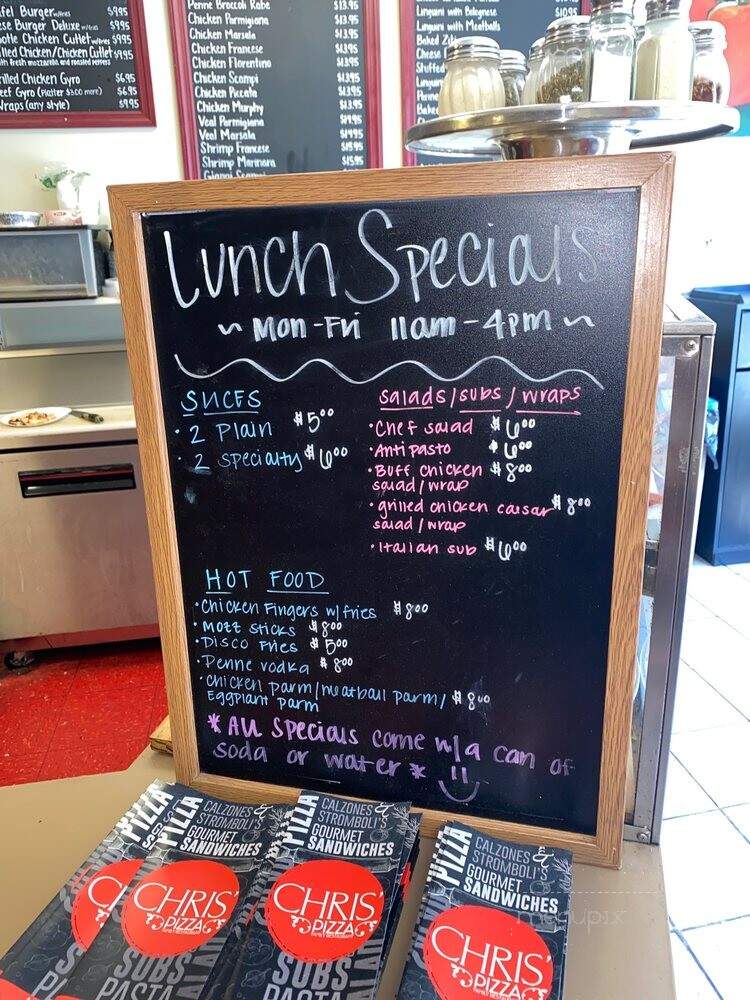 Burger $9.95
Burger Deluxe $9.95
Chicken Cutlet $9.95
Chicken/Chicken Cutlet $9.95
with fresh mozzarella and roasted peppers
Chicken Gyro $6.95
Gyro (Platter $3.00 more) $6.95
Wraps (any style) $9.95
Penne Broccoli Rabe $13.95
Chicken Parmigiana $13.95
Chicken Marsala $13.95
Chicken Francese $13.95
Chicken Florentino $13.95
Chicken Scampi $13.95
Chicken Piccata $13.95
Chicken Murphy $13.95
Veal Parmigiana $14.95
Veal Marsala $14.95
Shrimp Francese $15.95
Shrimp Marinara $15.95
Linguini with Bolognese
Linguini with Meatballs
Baked Ziti
Lunch Specials
~ Mon-Fri 11am-4pm ~
SLICES
• 2 Plain $5.00
• 2 Specialty $6.00
Salads/subs/wraps
• Chef salad $6.00
• Antipasto $6.00
• Buff chicken $8.00
salad/wrap
• grilled chicken caesar $8.00
salad/wrap
• Italian sub $6.00
HOT FOOD
• Chicken Fingers w/fries $8.00
• Mozz sticks $8.00
• Disco Fries $5.00
• Penne vodka $8.00
• Chicken parm/meatball parm/ $8.00
Eggplant parm
* All Specials come w/a can of
soda or water *
PIZZA
CALZONES &
STROMBOLI'S
GOURMET
SANDWICHES
CHRIS'
PIZZA
SUBS
PASTA
PIZZA
CALZONES &
STROMBOLI'S
GOURMET
SANDWICHES
CHRIS'
PIZZA
SUBS
PIZZA
CALZONES &
STROMBOLI'S
GOURMET
SANDWICHES
CHRIS'
PIZZA
menupix